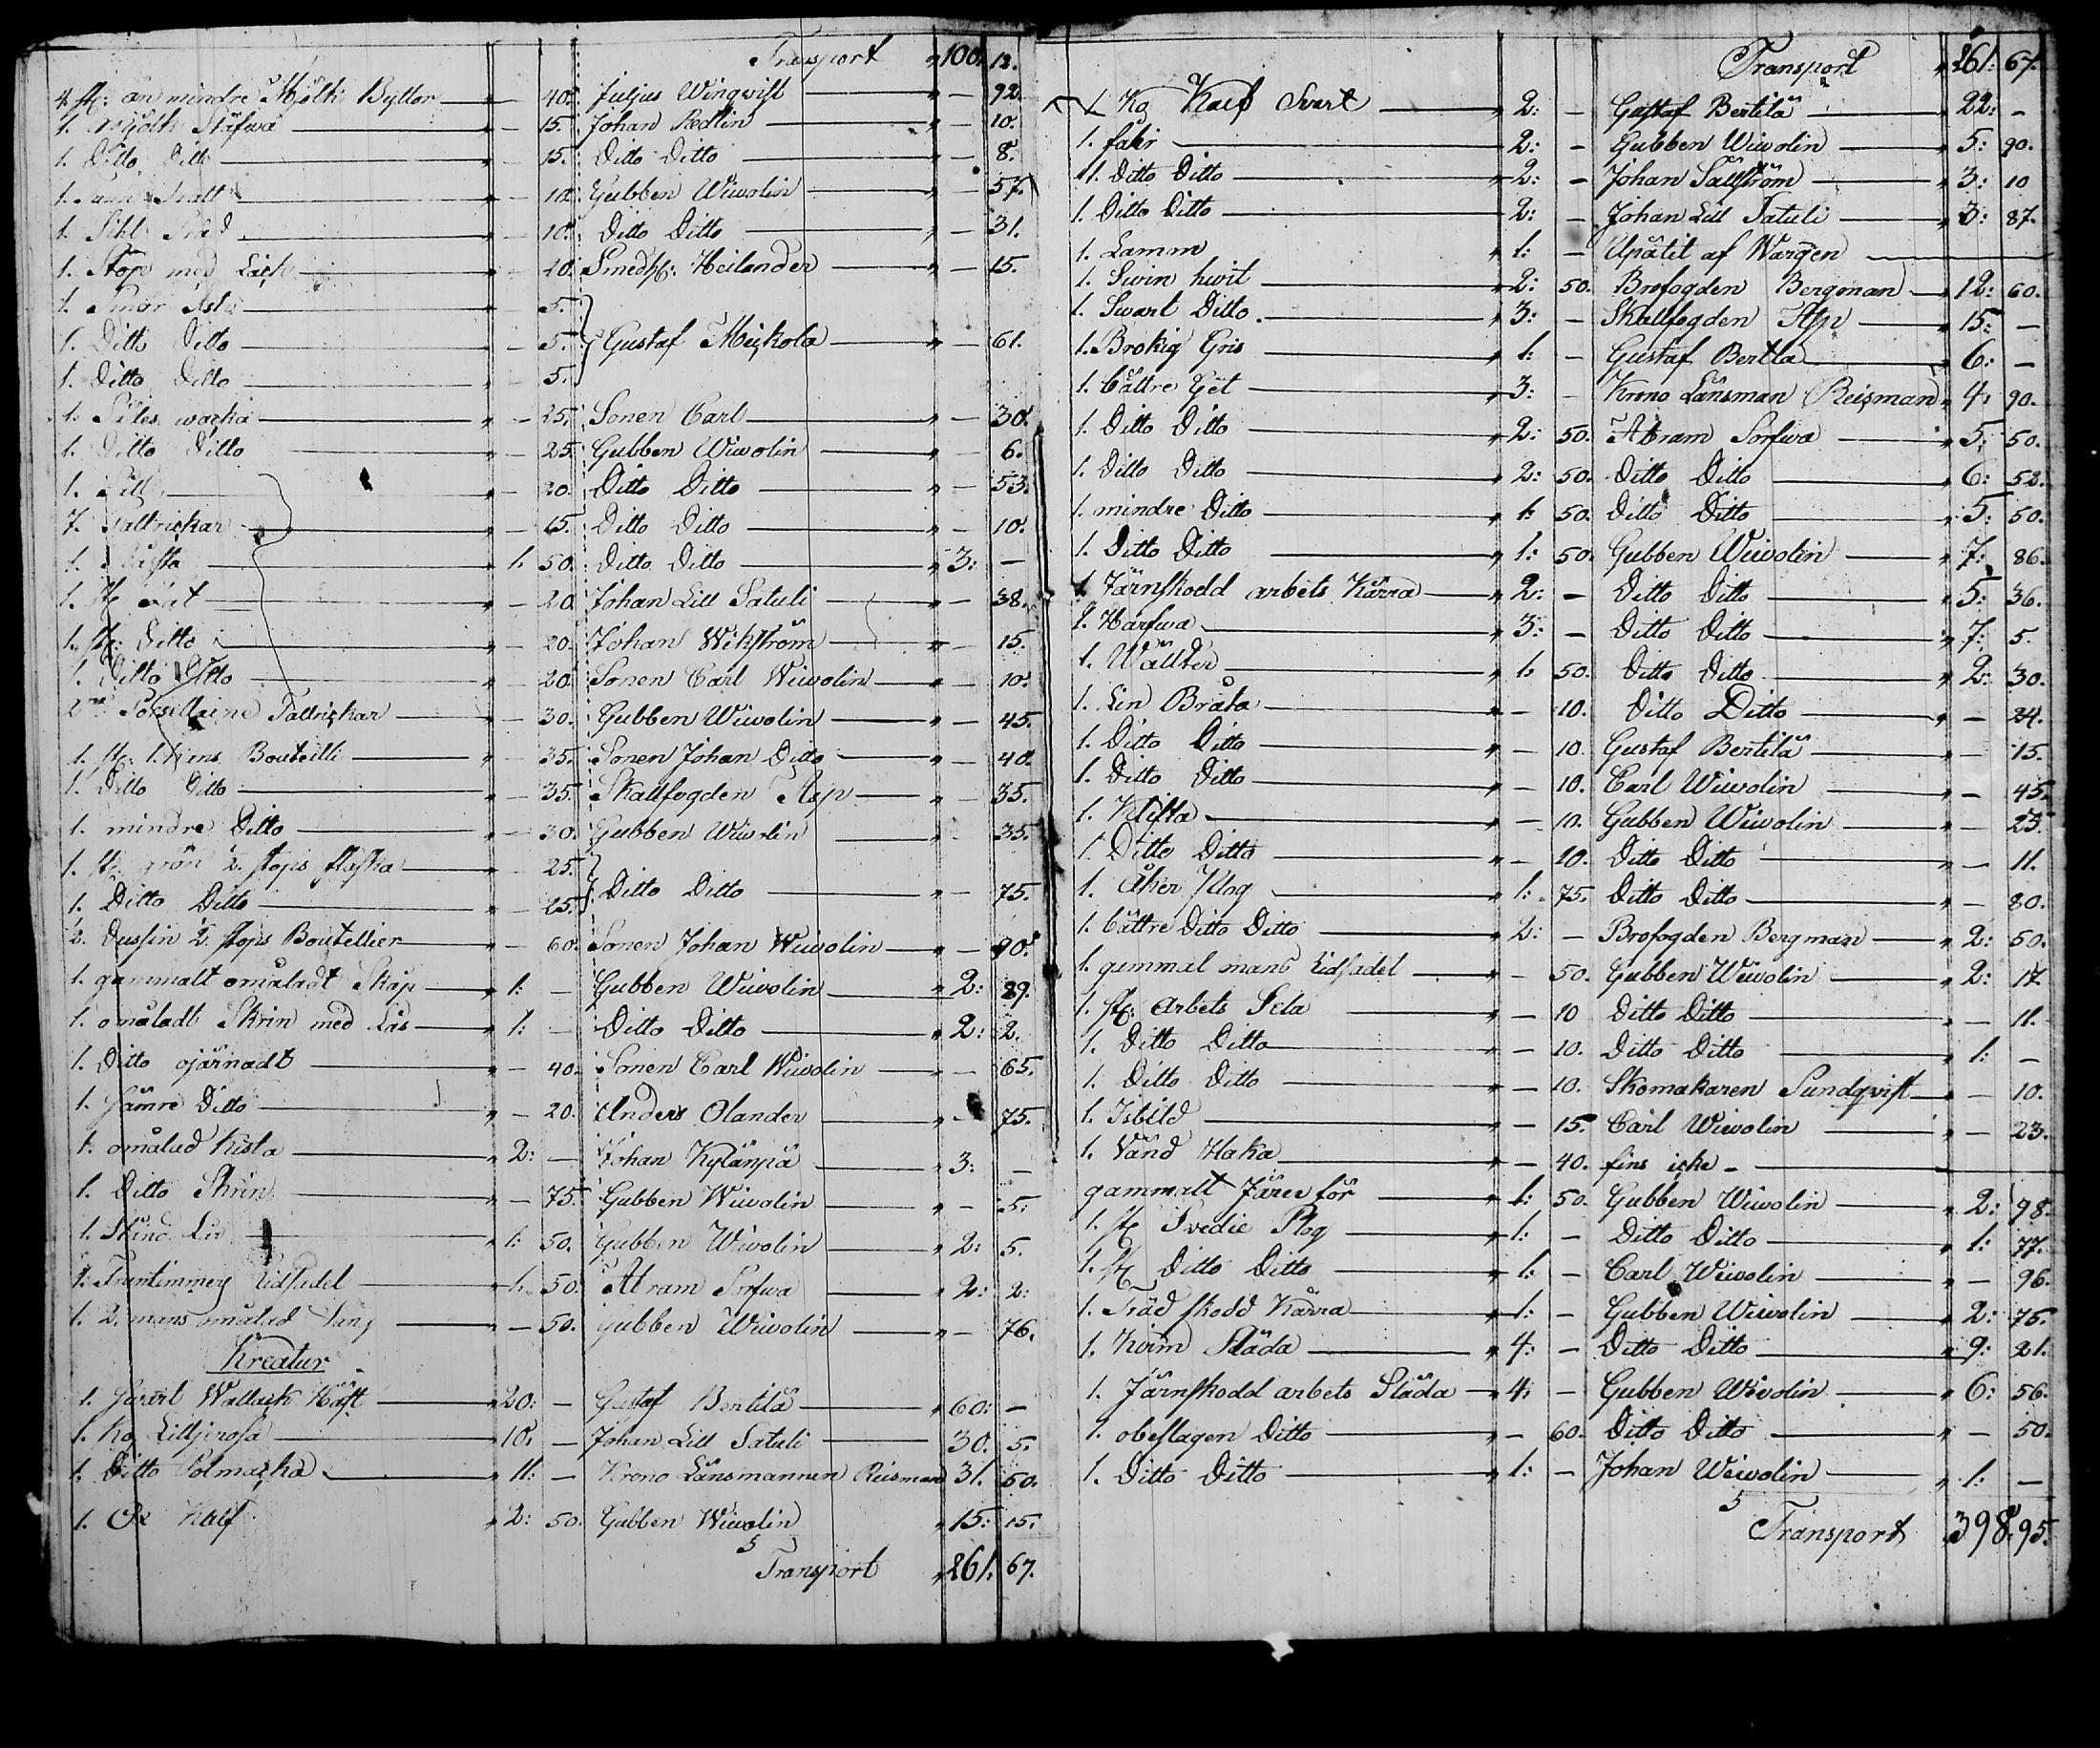 Transport " 100. 12.
4 st: än mindre Mjölk Byttor " — 40. Juljus Wingvist " — 92.
1. Mjölk Stäfwa " — 15. Johan Redlin " — 10.
1. Ditto Ditto " — 15. Ditto Ditto " — 8.
1. " — 10. Gubben Wiwolin " — 57.
1. " — 10. Ditto Ditto " — 31.
1. Stop med " — 20. Smeds: Heilander " — 15.
1. Smör " — 5.
1. Ditto Ditto " — 5. Gustaf Mickola " — 61.
1. Ditto Ditto " — 5.
1. wacka " — 25. Sonen Carl " — 30.
1. Ditto Ditto " — 25. Gubben Wiwolin " — 6.
1. " — 20. Ditto Ditto " — 53.
7. Tallrickar " — 15. Ditto Ditto " — 10.
1. " 1. 50. Ditto Ditto " 3: —
1. st " — 20. Johan Lill Satuli " — 38.
1. st: Ditto " — 20. Johan Wikström " — 15.
1. Ditto Ditto " — 20. Sonen Carl Wiwolin " — 10.
2 Porsellaine Tallrickar " — 30. Gubben Wiwolin " — 45.
1. st: Bouteilli " — 35. Sonen Johan Ditto " — 40.
1. Ditto Ditto " — 35. Skallfogden Asp " — 35.
1. mindre Ditto " — 30. Gubben Wiwolin " — 35.
1. st: grön 2. stops flaska " — 25.
1. Ditto Ditto " — 25. Ditto Ditto " — 75.
2. Dussin 2. stops Boutellier " — 60. Sonen Johan Wiwolin " — 90.
1. gammalt omåladt Skåp " 1: — Gubben Wiwolin " 2: 89.
1. omåladt Skrin med Lås " 1: — Ditto Ditto " 2: 2.
1. Ditto ojärnadt " — 40. Sonen Carl Wiwolin " — 65.
1. Sämre Ditto " — 20. Anders Olander " — 75.
1. omålad Kista " 2: — Johan Kylänpä " 3: —
1. Ditto Skrin " — 75. Gubben Wiwolin " — 5.
1. " 1: 50. Gubben Wiwolin " 2: 5.
1. Fruntimmers Ridsadel " 1. 50. Abram Sorfwa " 2: 2:
1. 2. mans omålad Säng " — 50. Gubben Wiwolin " — 76.
Kreatur
1. Swart Wallack Häst " 20: — Gustaf Bertila " 60: —
1. Ko Liljerosa " 10. — Johan Lill Satuli 30. 5.
1. Ditto Holmacka " 11: — Krono Länsmannen Reisman 31. 50.
1. Ox Kalf " 2: 50. Gubben Wiwolin " 15: 15.
Transport " 261. 67.
Transport " 261: 67.
1. Ko Kalf Svart " 2: — Gustaf Bertila " 22: —
1. fåhr " 2: — Gubben Wiwolin " 5: 90.
1. Ditto Ditto " 2: — Johan Sallström " 3: 10
1. Ditto Ditto " 2: — Johan Lill Satuli " 3: 87.
1. Lamm " 1: — Upätit af Wargen
1. Swin hwit " 2: 50. Brofogden Bergman " 12: 60.
1. Swart Ditto " 3: — Skallfogden Asp " 15: —
1. Brokig Gris " 1: — Gustaf Bertla " 6: —
1. bättre Get " 3: — Krono Länsman Reisman " 4. 90.
1. Ditto Ditto " 2: 50. Abram Sorfwa " 5. 50.
1. Ditto Ditto " 2: 50. Ditto Ditto " 6: 52.
1. mindre Ditto " 1: 50. Ditto Ditto " 5: 50.
1. Ditto Ditto " 1: 50. Gubben Wiwolin " 7: 86.
1. Järnskodd arbets Kärra " 2: — Ditto Ditto " 5: 36.
1. Harfwa " 3: — Ditto Ditto " 7: 5.
1. Wälter " 1. 50. Ditto Ditto " 2: 30.
1. Lin Bråka " — 10. Ditto Ditto " — 24.
1. Ditto Ditto " — 10. Gustaf Bertila " — 15.
1. Ditto Ditto " — 10. Carl Wiwolin " — 45.
1. Klifta " — 10. Gubben Wiwolin " — 25.
1. Ditto Ditto " — 10. Ditto Ditto " — 11.
1. Åker Plog " 1: 75. Ditto Ditto " — 80.
1. bättre Ditto Ditto " 2: — Brofogden Bergman " 2: 50.
1. gammal mans Ridsadel " — 50. Gubben Wiwolin " 2: 17.
1. st: Arbets Sela " — 10 Ditto Ditto " — 11.
1. Ditto Ditto " — 10. Ditto Ditto " 1: —
1. Ditto Ditto " — 10. Skomakaren Sundqvist " — 10.
1. Isbild " — 15. Carl Wiwolin " — 23.
1. Vänd Haka " — 40. fins icke
gammalt Järn för " 1: 50. Gubben Wiwolin " 2: 98.
1. st Svedie Plog " 1: — Ditto Ditto " 1: 77.
1. st Ditto Ditto " 1: — Carl Wiwolin " — 96.
1. Träd skodd Kärra " 1: — Gubben Wiwolin " 2: 75.
1. Korm Släda " 4: — Ditto Ditto " 9: 21.
1. Järnskodd arbets Släda " 4. — Gubben Wiwolin " 6: 56.
1. obeslagen Ditto " — 60. Ditto Ditto " — 50.
1. Ditto Ditto " 1: — Johan Wiwolin " 1: —
Transport 398. 95.